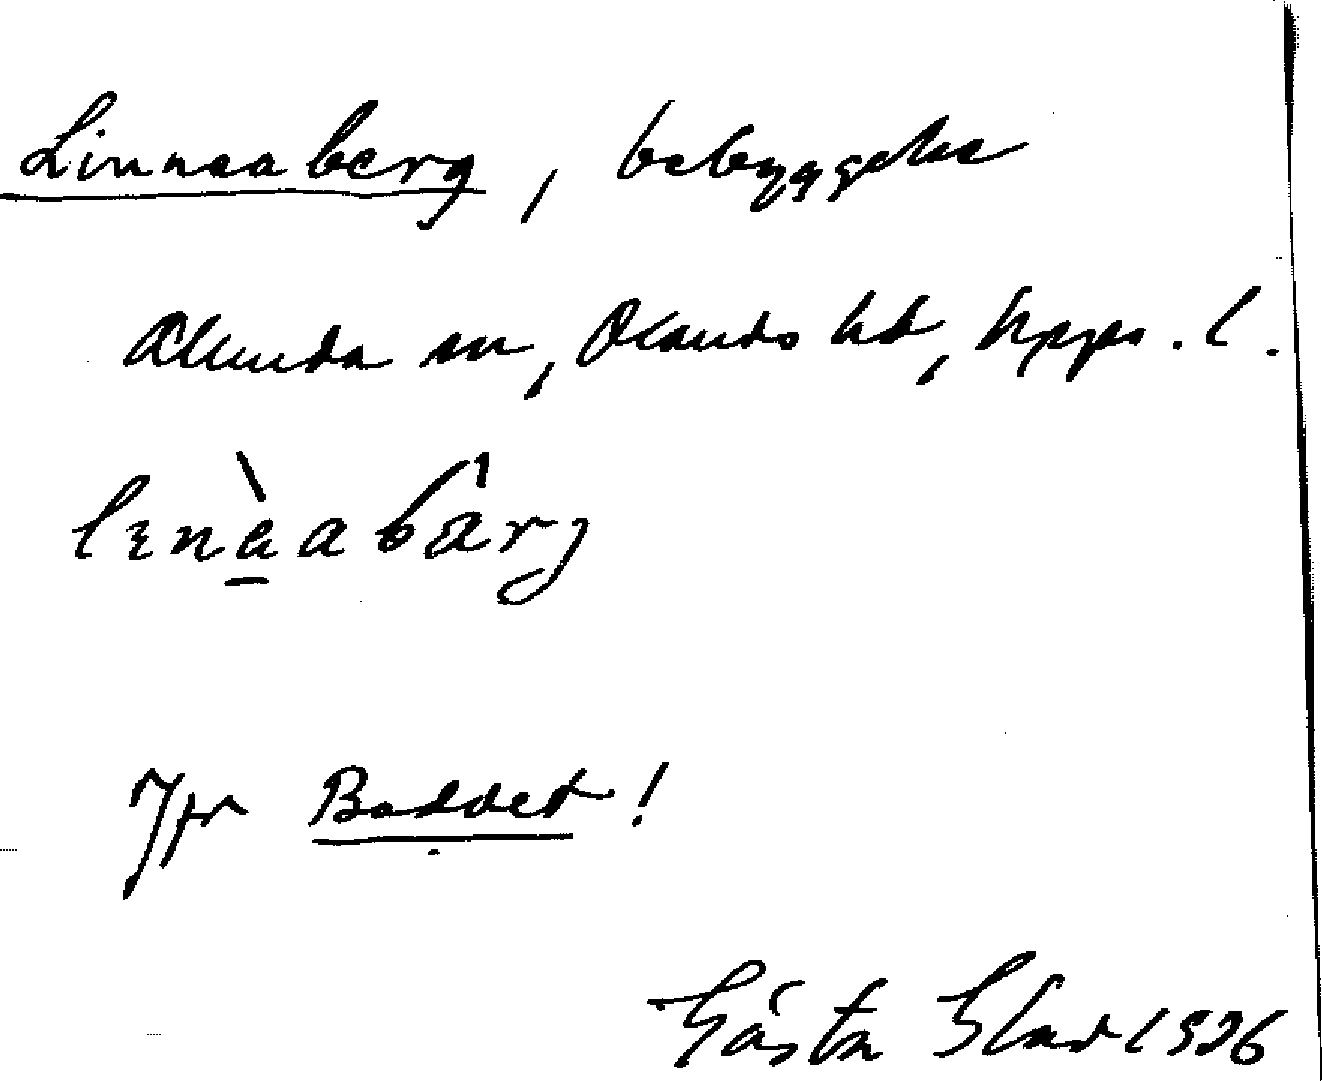 Linneaberg, bebyggelse
Alunda sn, Olands hd, Upps. l.
lenèabärj
Jfr Boddet!
Gösta 1926